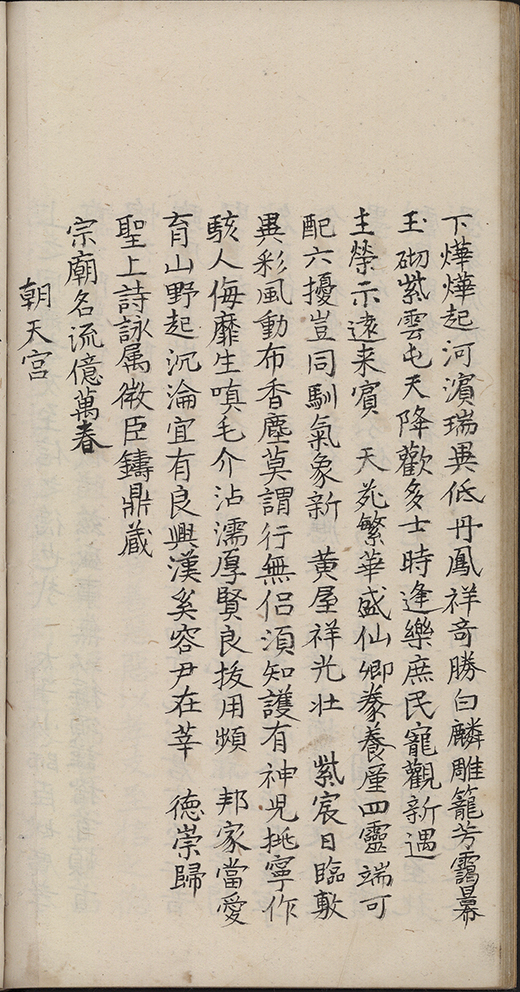 下燁燁起河濱瑞異低丹鳳祥奇勝白麟雕籠芳靄冪
玉砌紫雲屯天降歡多士時逢樂庶民寵觀新遇
主榮示遠来賓　天苑繁華盛仙卿豢養廑四靈端可
配六擾豈同馴氣象新　黄屋祥光壮　紫宸日臨敷
異彩風動布香塵莫謂行無侣須知護有神児挑寧作
駭人侮靡生嗔毛介沾濡厚賢良拔用頻　邦家當愛
育山野起沉淪宜有良興漢奚容尹在莘　徳崇歸
聖上詩詠属微臣鑄鼎蔵
宗廟名流億萬春
朝天宫